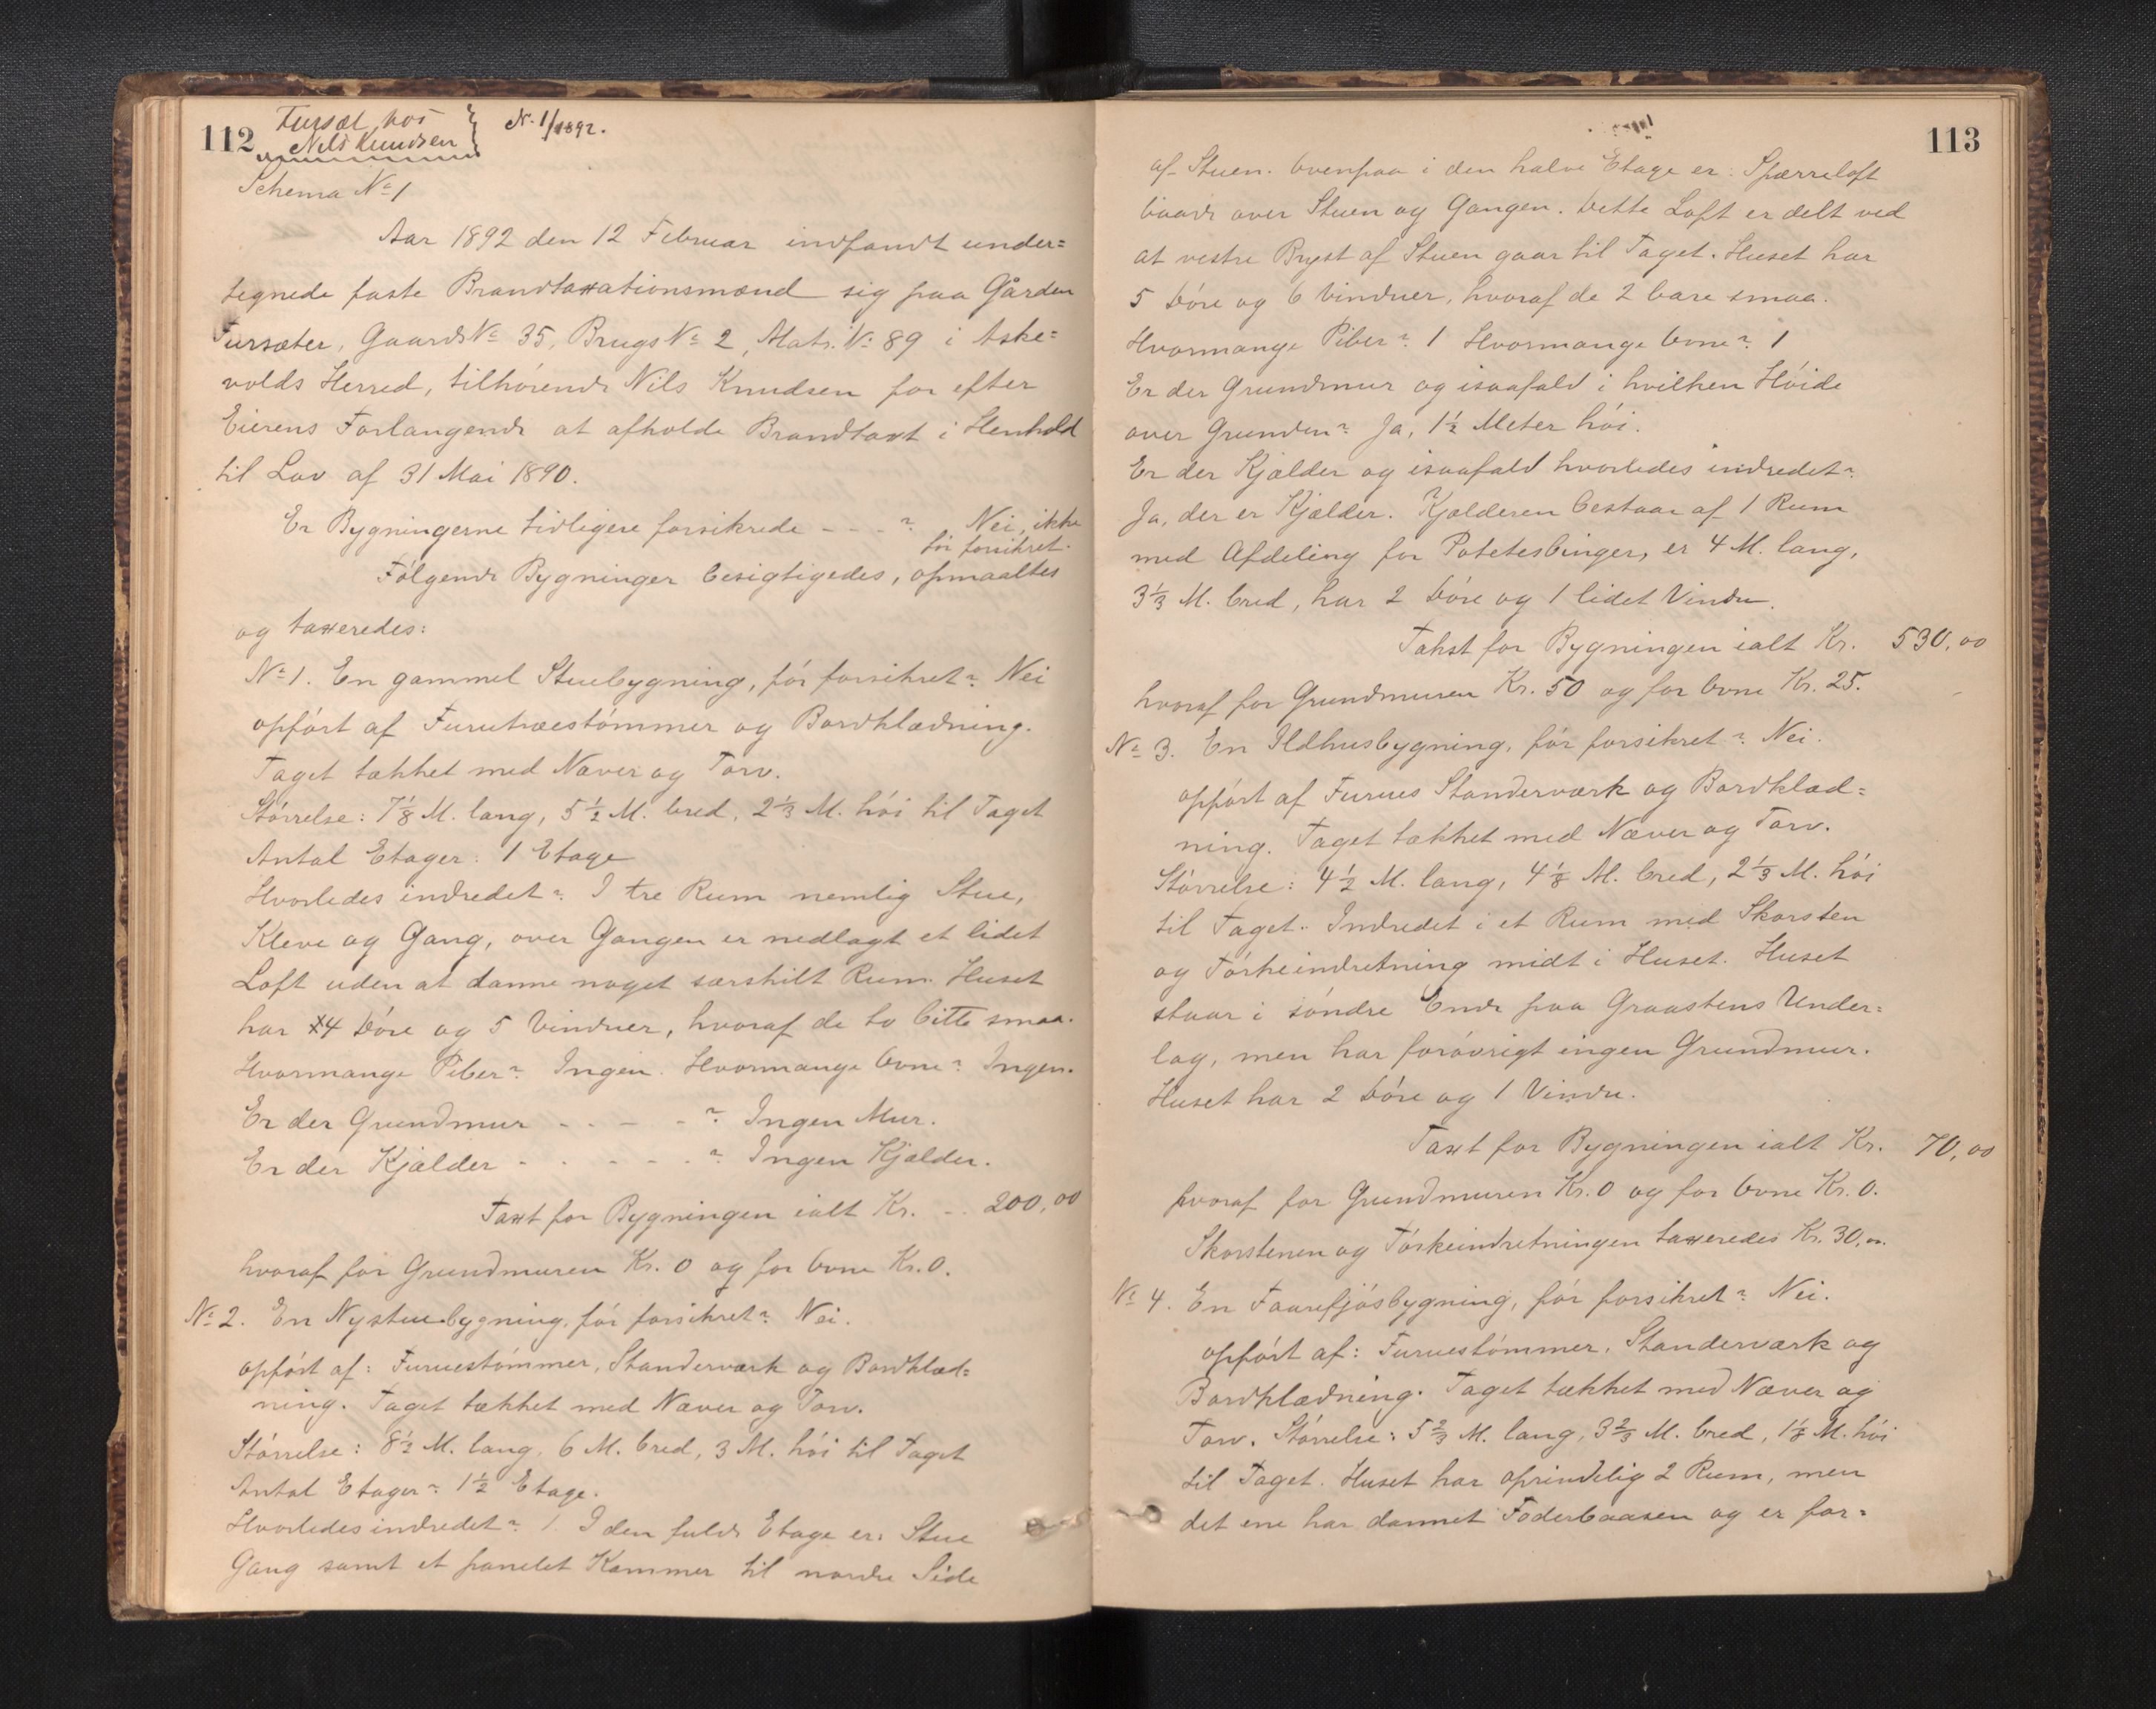 112 Fursæt hos
Nils Knudsen } N. 1/1892.
Schema No 1
Aar 1892 den 12 Februar indfandt under=
tegnede faste Brandtaxationsmænd sig paa Gården
Fursæter, Gaards No 35, Brugs No 2, Matr. No 89 i Aske=
volds Herred, tilhørende Nils Knudsen for efter
Eierens Forlangende at afholde Brandtaxt i Henhold
til Lov af 31 Mai 1890.
Er Bygningerne tidligere forsikrede - - - ? Nei, ikke
før forsikret.
Følgende Bygninger besigtigedes, opmaaltes
og taxeredes:
No 1. En gammel Stuebygning, før forsikret? Nei
opført af Furutræestømmer og Bordklædning.
Taget tækket med Næver og Torv.
Størrelse: 7 1/8 M. lang, 5 1/2 M. bred, 2 1/3 M. høi til Taget
Antal Etager: 1 Etage
Hvorledes indredet? I tre Rum nemlig Stue,
Kleve og Gang, over Gangen er nedlagt et lidet
Loft uden at danne noget særskilt Rum. Huset
har 4 Døre og 5 Vinduer, hvoraf de to bitte smaa.
Hvormange Piber? Ingen. Hvormange Ovne? Ingen.
Er der Grundmur - - - - ? Ingen Mur.
Er der Kjælder - - - - - ? Ingen Kjælder.
Taxt for Bygningen ialt Kr. - - 200,00
hvoraf for Grundmuren Kr. 0 og for Ovne Kr. 0.
No 2. En Nystuebygning, før forsikret? Nei.
opført af: Furuestømmer, Standerværk og Bordklæd=
ning. Taget tækket med Næver og Torv.
Størrelse: 8 1/2 M. lang, 6 M. bred, 3 M. høi til Taget
Antal Etager? 1 1/2 Etage.
Hvorledes indredet? 1. I den fulde Etage er: Stue
Gang samt et panelet Kammer til nordre Side
113
af Stuen. Ovenpaa i den halve Etage er: Spærreloft
baade over Stuen og Gangen. Dette Loft er delt ved
at vestre Bryst af Stuen gaar til Taget. Huset har
5 Døre og 6 Vinduer, hvoraf de 2 bare smaa.
Hvormange Piber? 1 Hvormange Ovne? 1
Er der Grundmur og isaafald i hvilken Høide
over Grunden? Ja, 1 1/2 Meter høi.
Er der Kjælder og isaafald hvorledes indredet?
Ja, der er Kjælder. Kjælderen bestaar af 1 Rum
med Afdeling for Potetesbinger, er 4 M. lang,
3 1/3 M. bred, har 2 Døre og 1 lidet Vindu.
Takst for Bygningen ialt Kr. 530,00
hvoraf for Grundmuren Kr. 50 og for Ovne Kr. 25.
No 3. En Ildhusbygning, før forsikret? Nei.
opført af Furues Standerværk og Bordklæd=
ning. Taget tækket med Næver og Torv.
Størrelse: 4 1/2 M. lang, 4 1/8 M. bred, 2 1/3 M. høi
til Taget. Indredet i et Rum med Skorsten
og Tørkeindretning midt i Huset. Huset
staar i søndre Ende paa Graastens Under=
lag, men har forøvrigt ingen Grundmur.
Huset har 2 Døre og 1 Vindu.
Taxt for Bygningen ialt Kr. 70,00
hvoraf for Grundmuren Kr. 0 og for Ovne Kr. 0.
Skorstenen og Tørkeindretningen taxeredes Kr. 30,00.
No 4. En Faarefjøsbygning, før forsikret? Nei.
opført af: Furuestømmer, Standerværk og
Bordklædning. Taget tækket med Næver og
Torv. Størrelse: 5 2/3 M. lang, 3 2/3 M. bred, 1 1/8 M. høi
til Taget. Huset har oprindelig 2 Rum, men
det ene har dannet Foderbaasen og er for=